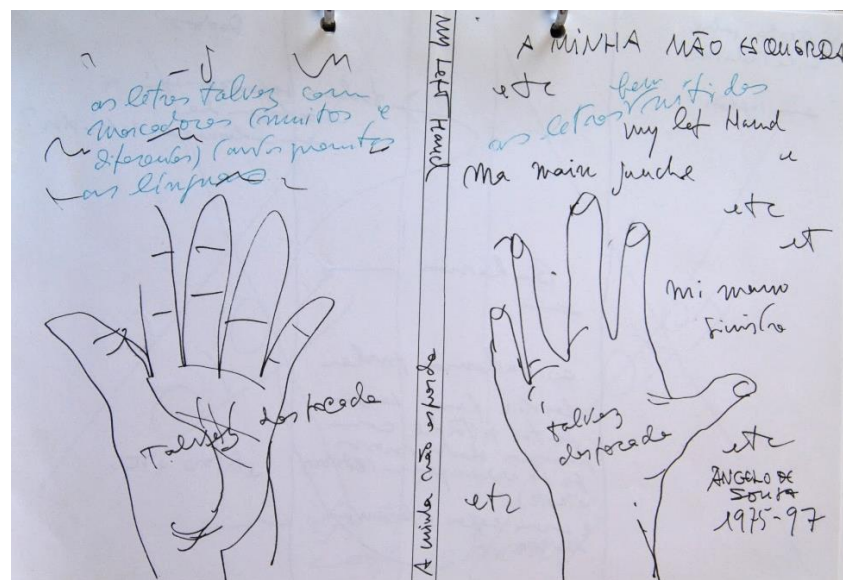 as letras talvez com
marcadores (muitos e
diferentes) (tantos quantos
as línguas
Talvez desfocada
My Left Hand
A minha mão esquerda
A MINHA MÃO ESQUERDA
etc
bem
as letras nítidas
my lef Hand
Ma main gauche
etc
et
mi mano
sinistra
talvez
desfocada
etc
etc
ÂNGELO DE
SOUSA
1975-97